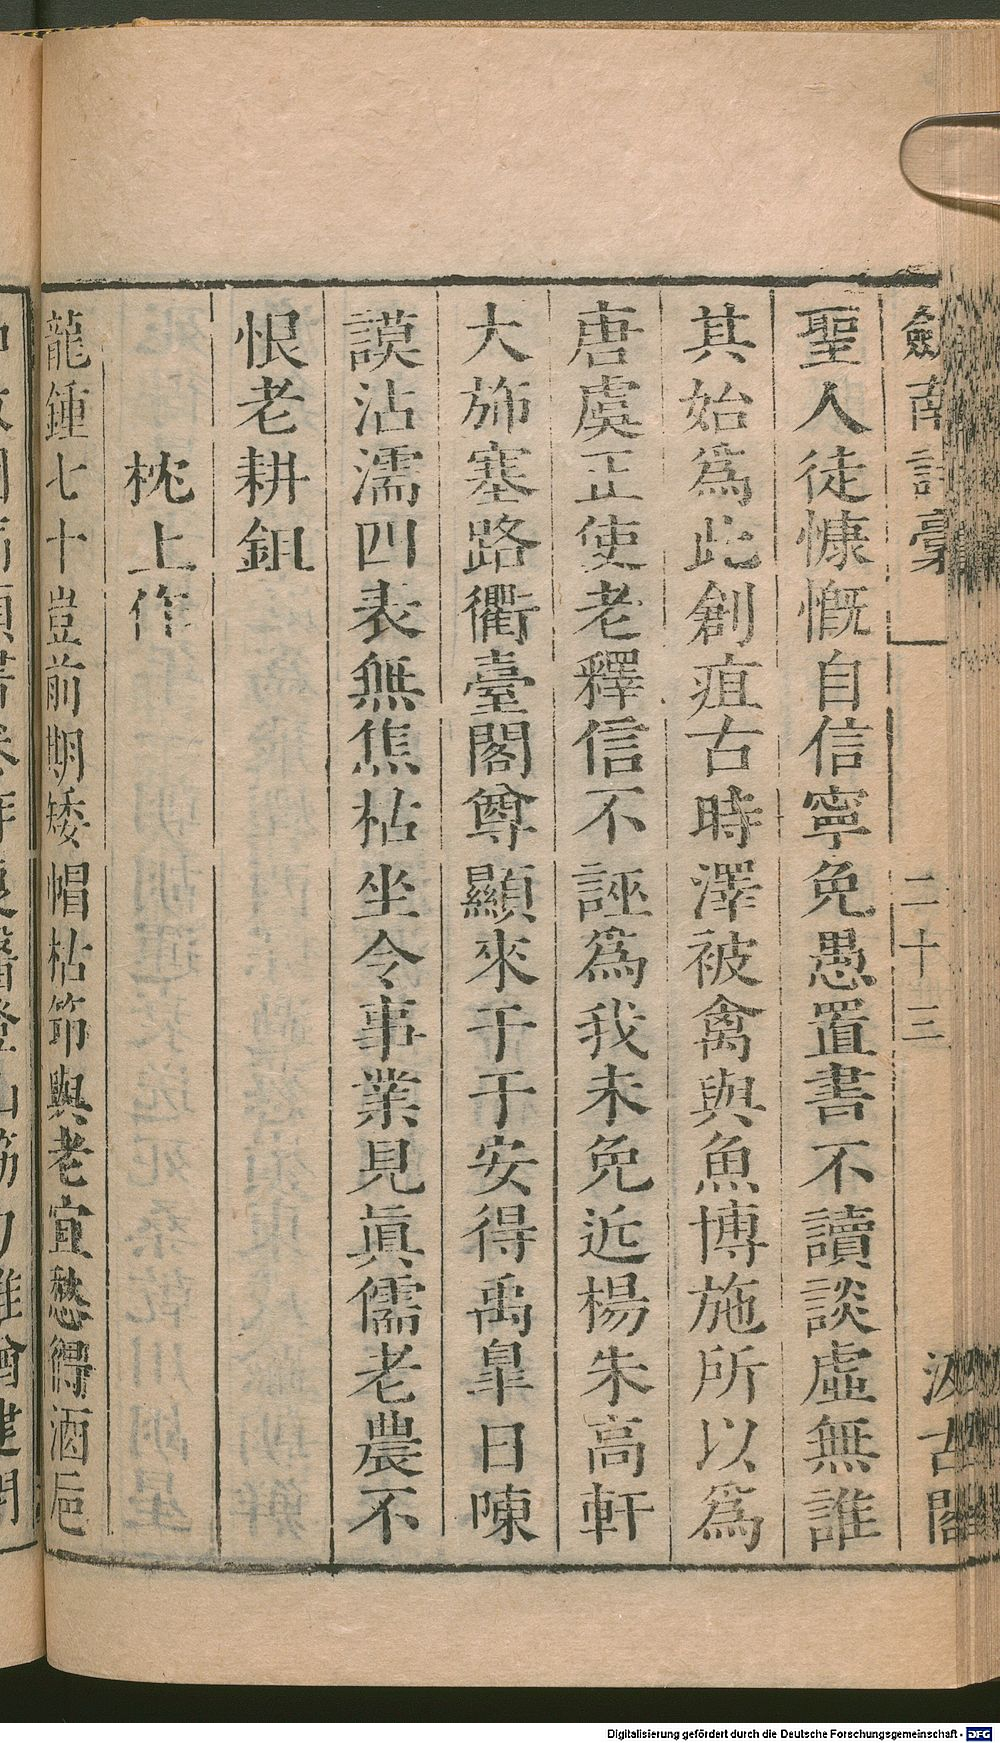 劍南詩稾 二十三 汲古閣
聖人徒慷慨自信寧免愚置書不讀談虛無誰
其始爲此創疽古時澤被禽與魚博施所以爲
唐虞正使老釋信不誣爲我未免近楊朱高軒
大旆塞路衢臺閣尊顯來于于安得禹臯日陳
謨沾濡四表無焦枯坐令事業見眞儒老農不
恨老耕鉏
枕上作
龍鍾七十豈前期矮帽枯筇與老宜愁得酒巵
Digitalisierung gefördert durch die Deutsche Forschungsgemeinschaft - DFG